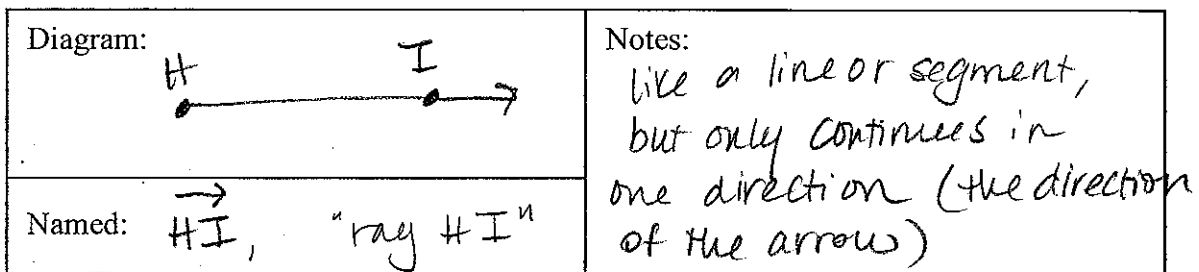 Diagram:
H I
Named: HI, "ray HI"
Notes:
like a line or segment,
but only continues in
one direction (the direction
of the arrow)